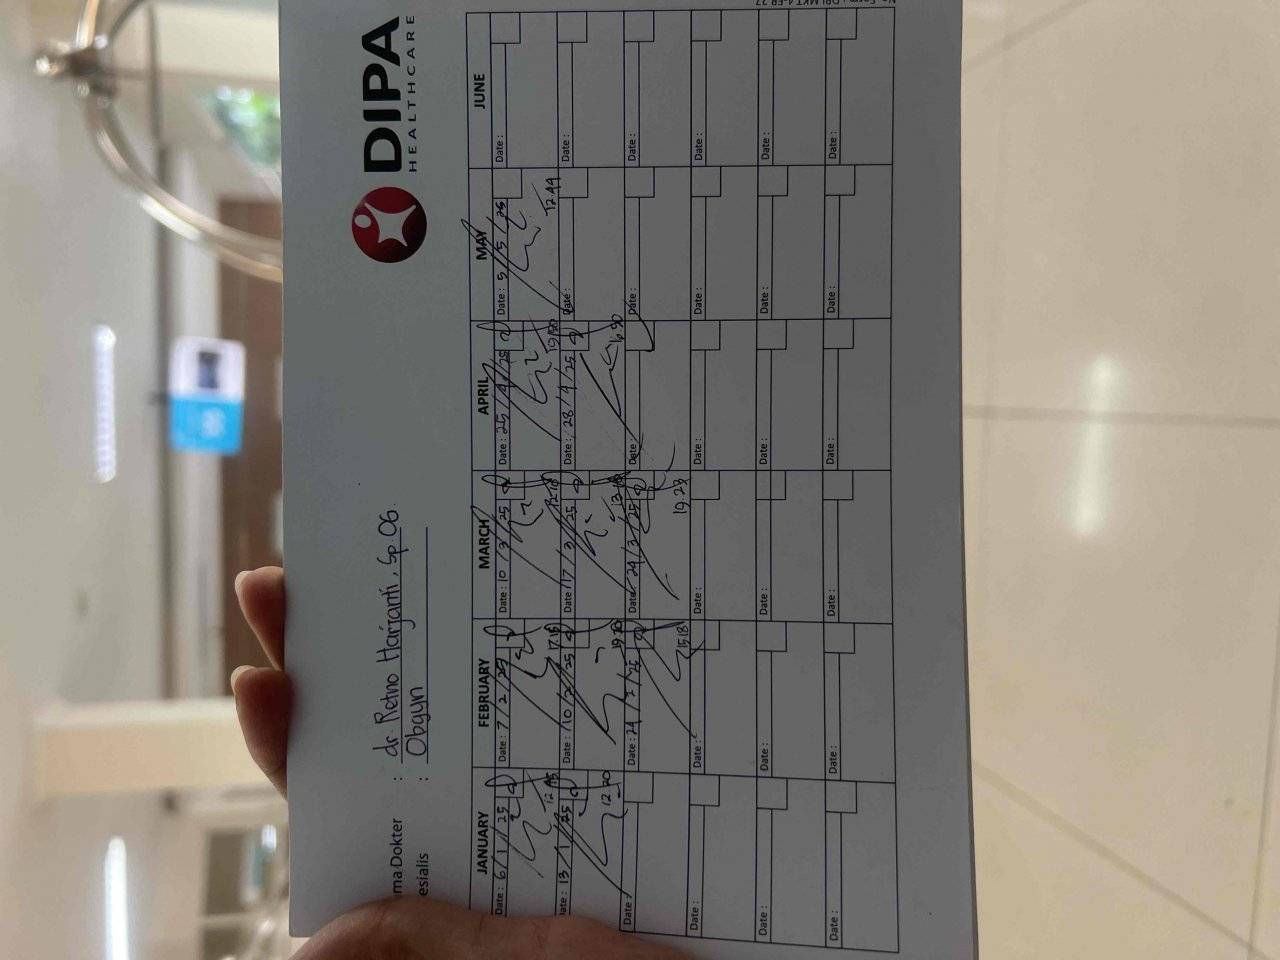 DIPA
HEALTHCARE
ma Dokter : dr Retno Harjanti, Sp.OG
esialis : Obgyn
JANUARY FEBRUARY MARCH APRIL MAY JUNE
Date : 6/1/25 Date : 7/2/25 Date : 10/3/25 Date : 25/4/25 Date : 5/5/25 Date :
12.45 17.15 12.10 19.50 12.49
ate : 13/1/25 Date : 10/2/25 Date : 17/3/25 Date : 28/4/25 Date : Date :
12.20 19.20 13.10 16.50
Date : Date : 24/2/25 Date : 24/3/25 Date : Date : Date :
15.18 19.23
Date : Date : Date : Date : Date : Date :
Date : Date : Date : Date : Date : Date :
Date : Date : Date : Date : Date : Date :